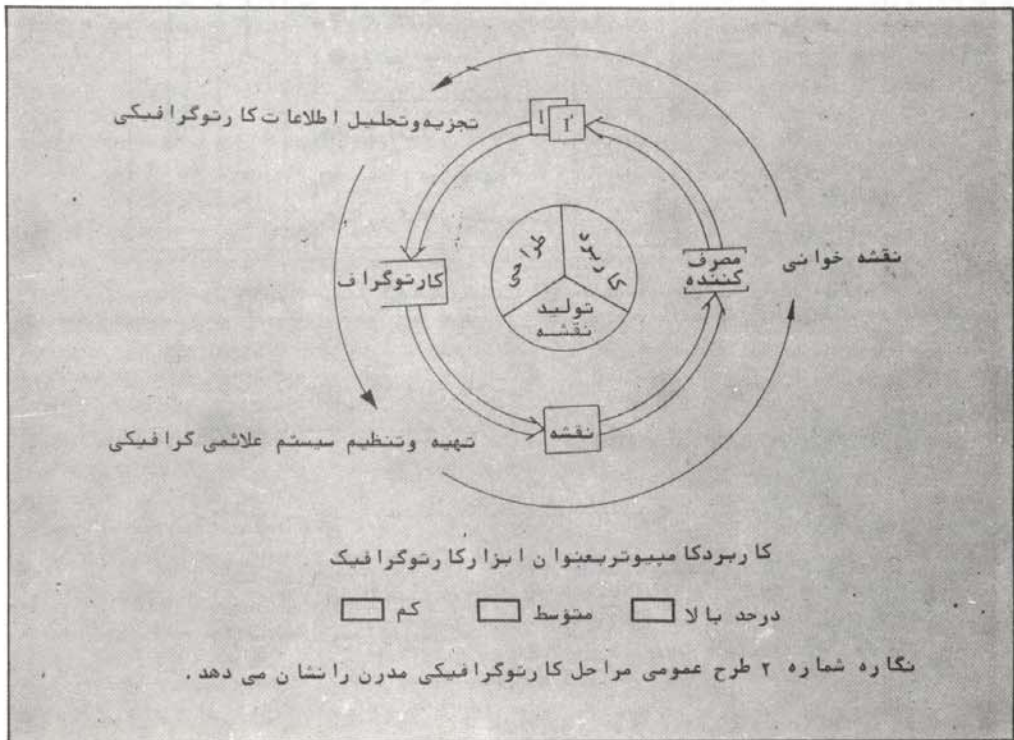 تجزیه وتحلیل اطلاعات کارتوگرافیکی
I I'
طراحی
کاربرد
تولید
نقشه
کارتوگراف
مصرف
کننده
نقشه خوانی
نقشه
تهیه وتنظیم سیستم علائمی گرافیکی
کاربردکامپیوتربعنوان ابزارکارتوگرافیک
درحد بالا متوسط کم
نگاره شماره ۲ طرح عمومی مراحل کارتوگرافیکی مدرن رانشان می دهد.